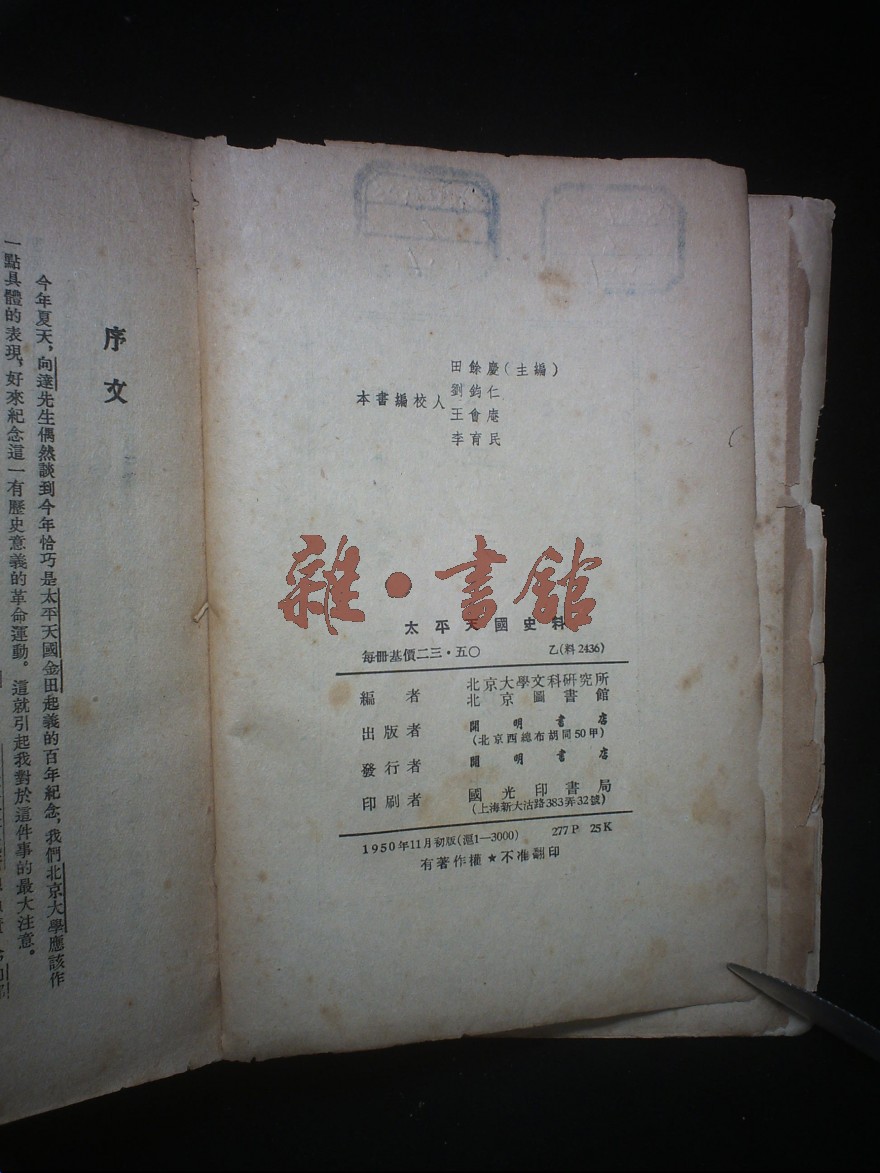 田餘慶(主編)
劉鈞仁
本書編校人
王會庵
李育民
雜·書館
太平天國史料
每冊基價二三·五〇 乙(料2436)
編者 北京大學文科研究所
北京圖書館
出版者 開明書店
(北京西總布胡同50甲)
發行者 開明書店
印刷者 國光印書局
(上海新大沽路383弄32號)
1950年11月初版(滬1—3000) 277P 25K
有著作權★不准翻印
序文
今年夏天,向達先生偶然談到今年恰巧是太平天國金田起義的百年紀念,我們北京大學應該作
一點具體的表現,好來紀念這一有歷史意義的革命運動。這就引起我對於這件事的最大注意。